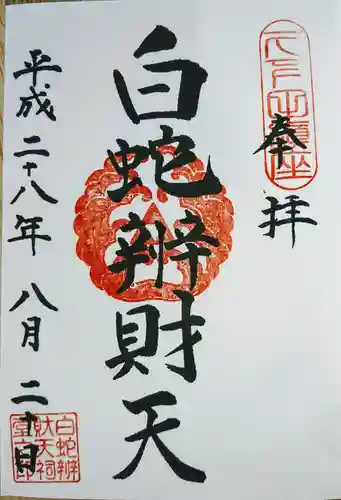 奉拝
白蛇辨財天
平成二十八年 八月 二十日
白蛇辨
財天祠